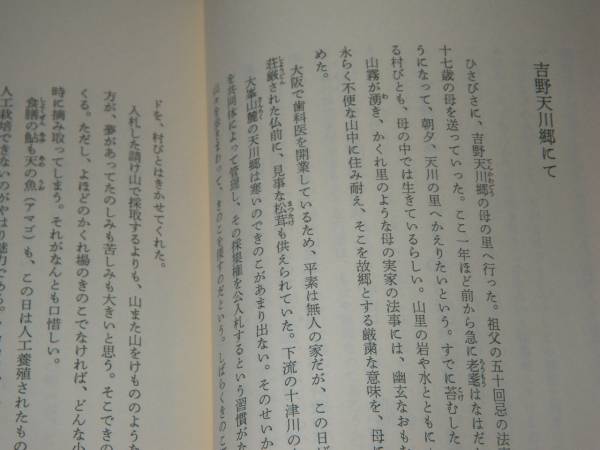 吉野天川郷にて
ひさびさに、吉野天川郷の母の里へ行った。祖父の五十回忌の法
十七歳の母を送っていった。ここ一年ほど前から急に老耄はなはだ
うになって、朝夕、天川の里へかえりたいという。すでに苔むした
る村びとも、母の中では生きているらしい。山里の岩や水とともに
山霧が湧き、かくれ里のような母の実家の法事には、幽玄なおも
永らく不便な山中に住み耐え、そこを故郷とする厳粛な意味を、母に
めた。
大阪で歯科医を開業しているため、平素は無人の家だが、この日
荘厳された仏前に、見事な松茸も供えられていた。下流の十津川の
大峯山麓の天川郷は寒いのできのこがあまり出ない。そのせいか
を共同体によって管理し、その採集権を公入札するという習慣が
きのこを探すのだという。しばらくきのこ
ドを、村びとはきかせてくれた。
入札した請け山で採取するよりも、山また山をけもののような
方が、夢があってたのしみも苦しみも大きいと思う。そこできの
くる。ただし、よほどのかくれ場のきのこでなければ、どんな小
時に摘み取ってしまう。それがなんとも口惜しい。
食膳の鮎も天の魚（アマゴ）も、この日は人工養殖されたもの
人工栽培できないのがやはり魅力である。